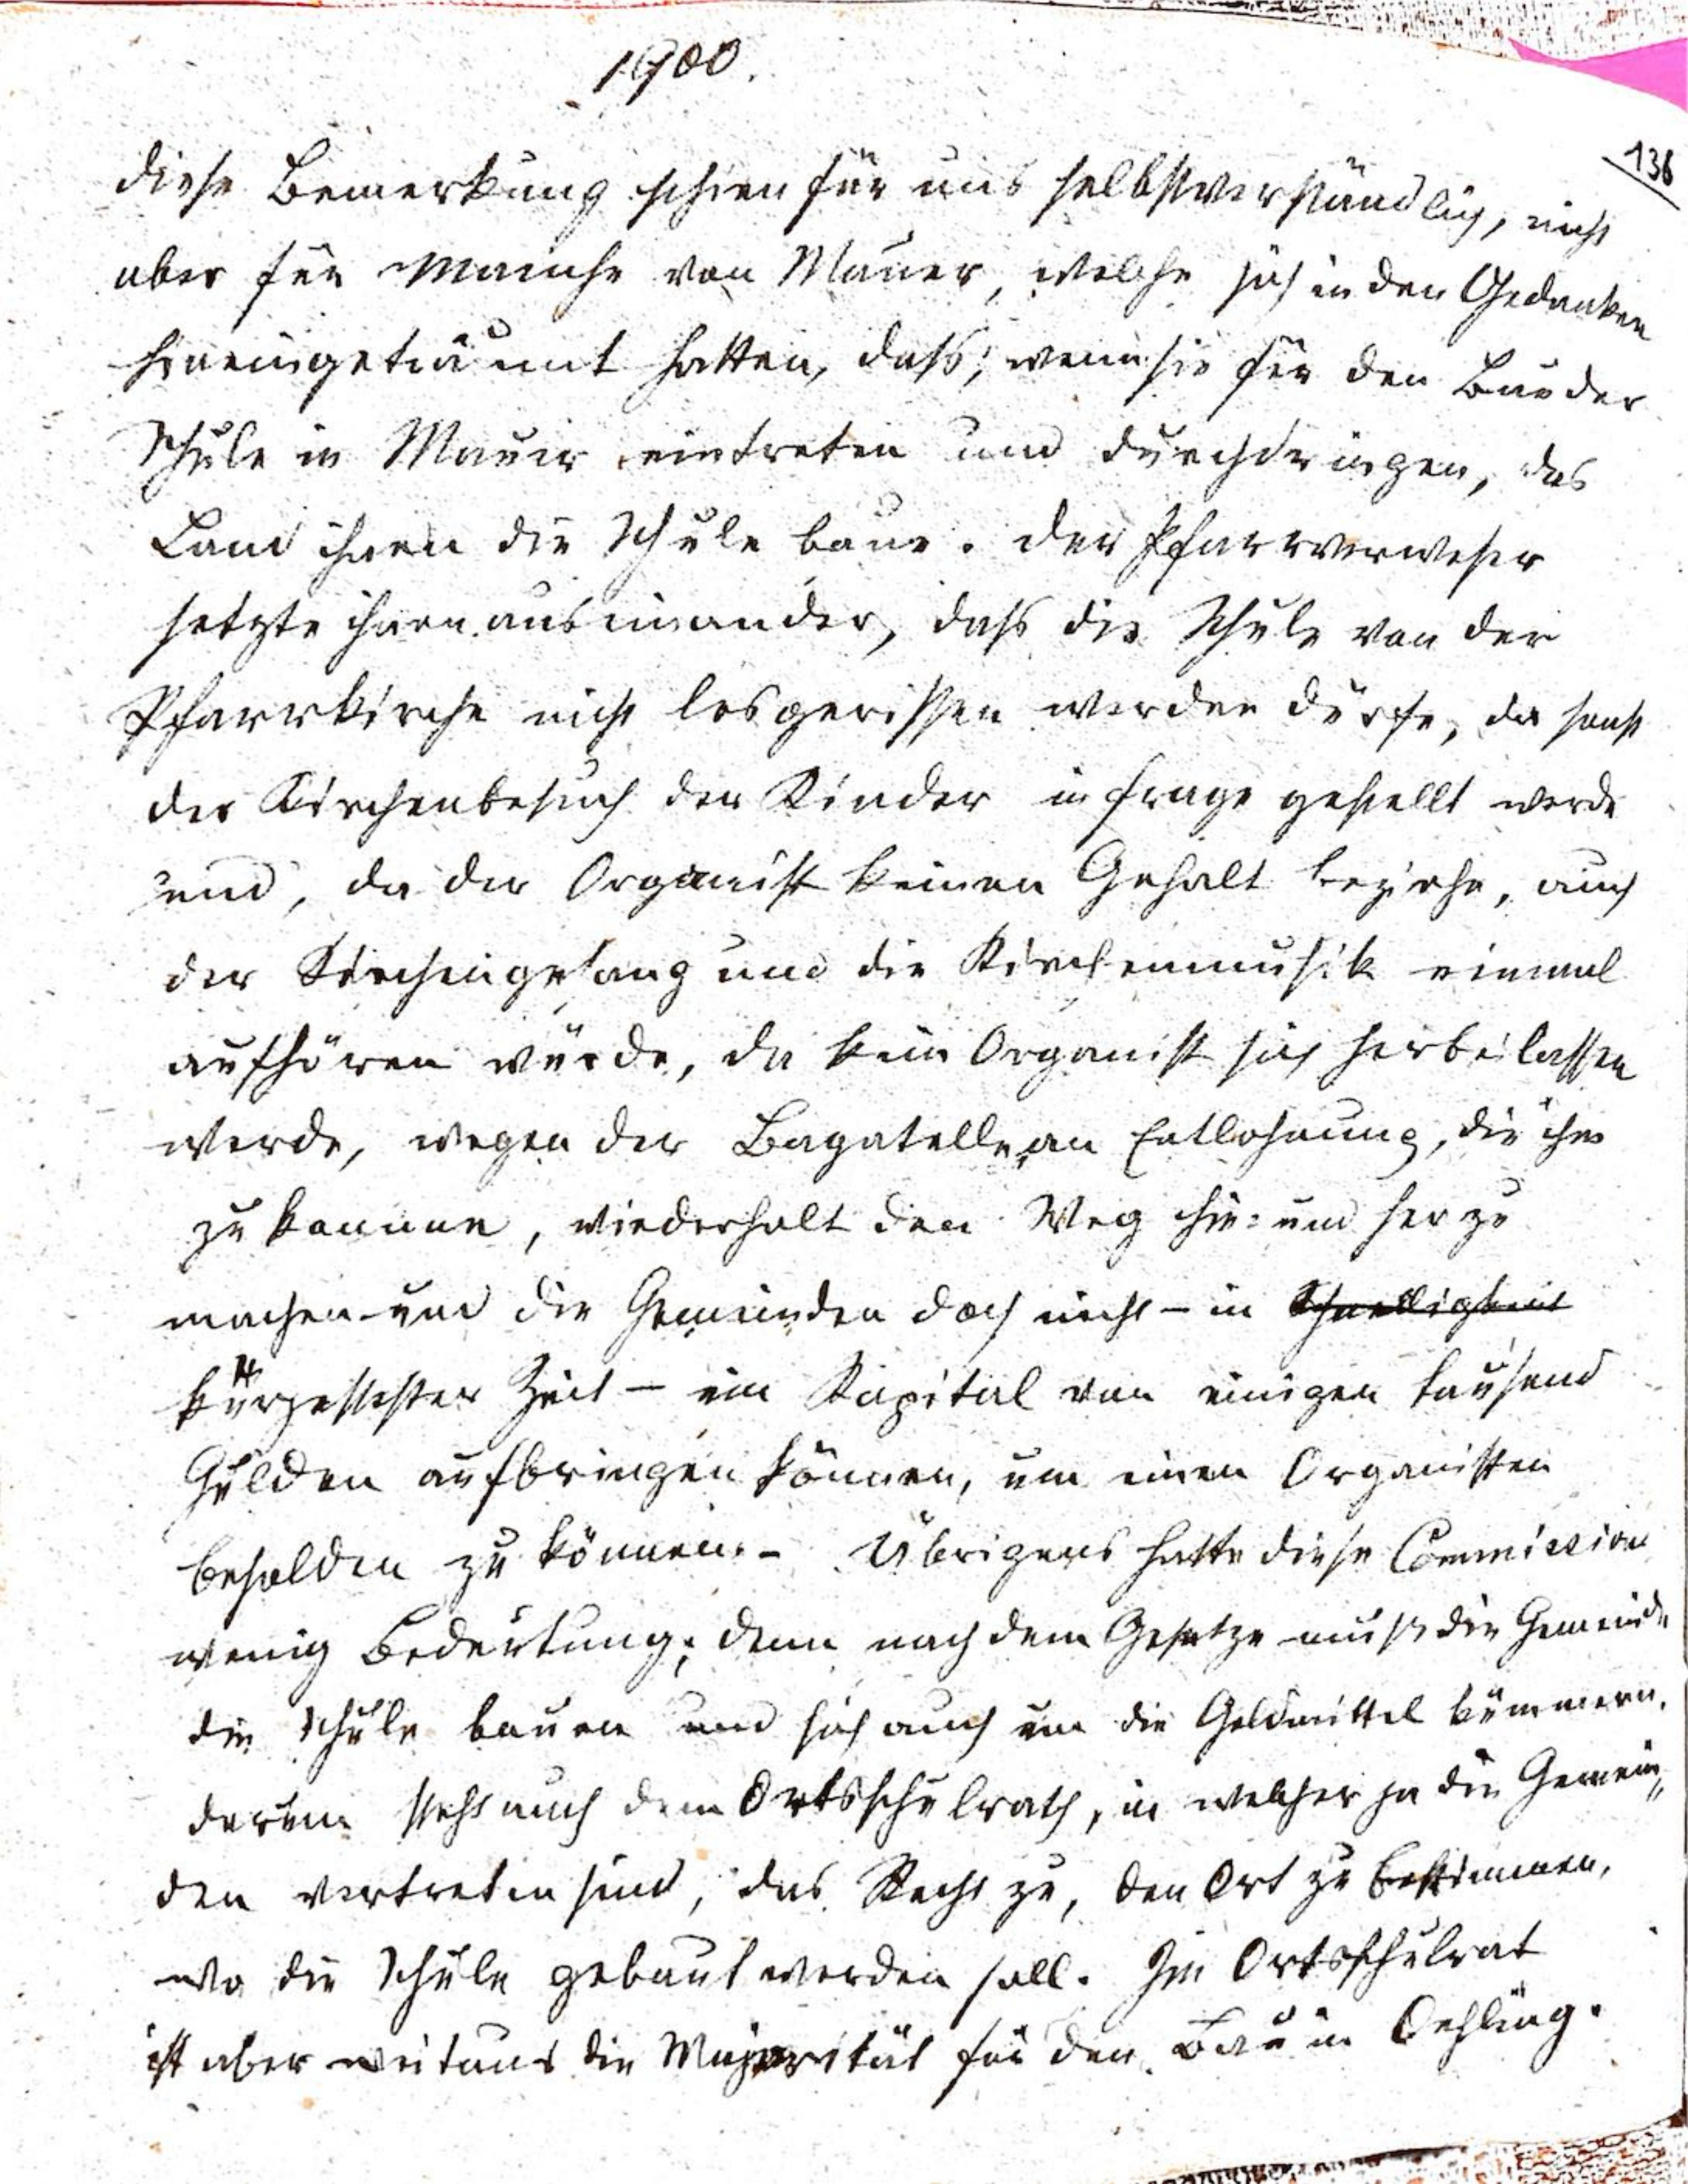 1900.
136
diese Bemerkung schien für uns selbstverständlich, nicht
aber für Manche von Mauer, welche sich in den Gedanken
hineingeträumt hatten, dass, wenn sie für den Bau der
Schule in Mauer eintreten und durchdringen, das
Land ihnen die Schule baue. Der Pfarrverweser
setzte ihnen auseinander, dass die Schule von der
Pfarrkirche nicht losgerissen werden dürfe, da sonst
der Kirchenbesuch der Kinder in frage gestellt werde
und, da der Organist keinen Gehalt beziehe, auch
der Kirchengesang und die Kirchenmusik einmal
aufhören würde, da kein Organist sich herbeilassen
werde, wegen der Bagatelle an Entlohnung, die ihm
zu komme, wiederholt den Weg hin= und her zu
machen und die Gemeinden doch nicht – in Schnelligkeit
kürzester Zeit – ein Kapital von einigen tausend
Gulden aufbringen können, um einen Organisten
besolden zu können. – Übrigens hatte diese Commission
wenig Bedeutung; denn nach dem Gesetze muß die Gemeinde
die Schule bauen und sich auch um die Geldmittel kümmern.
darum steht auch dem Ortsschulrath, in welcher ja die Gemein„
den vertreten sind, das Recht zu, den Ort zu bestimmen,
wo die Schule gebaut werden soll. Im Ortsschulrat
ist aber weitaus die Majorität für den Bau in Oehling.